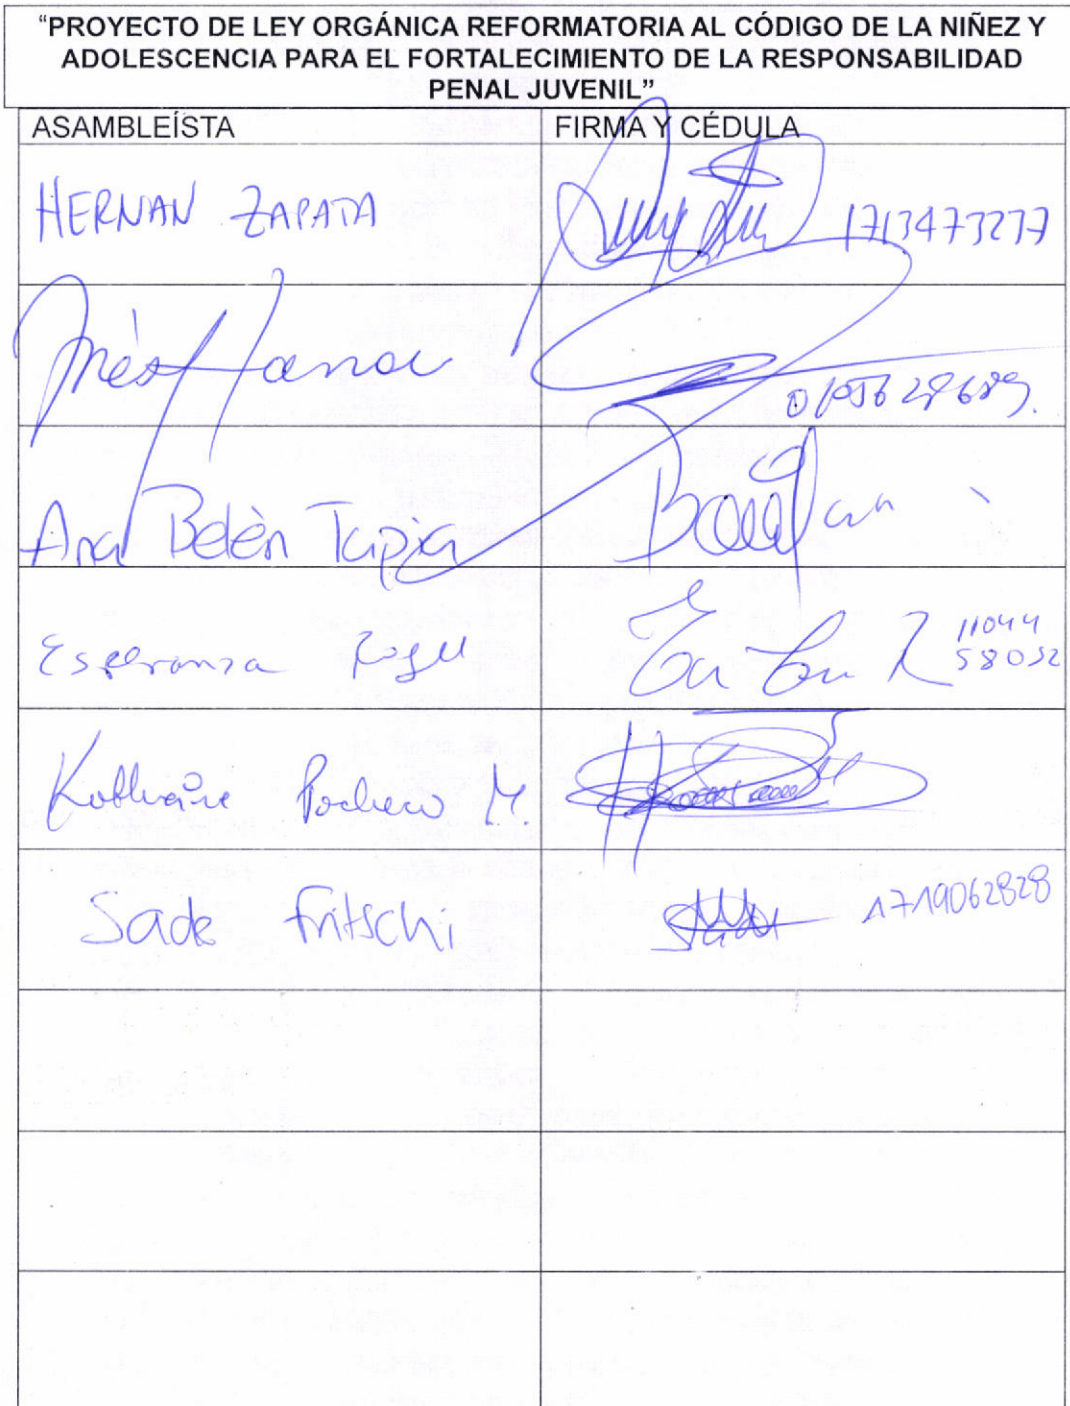 “PROYECTO DE LEY ORGÁNICA REFORMATORIA AL CÓDIGO DE LA NIÑEZ Y
ADOLESCENCIA PARA EL FORTALECIMIENTO DE LA RESPONSABILIDAD
PENAL JUVENIL”
ASAMBLEÍSTA FIRMA Y CÉDULA
HERNAN ZAPATA 1713473277
Inés
Ana Belén Tapia
Esperanza Rogel 11044
58032
Pacheco M.
Sade Fritschi 1719062828